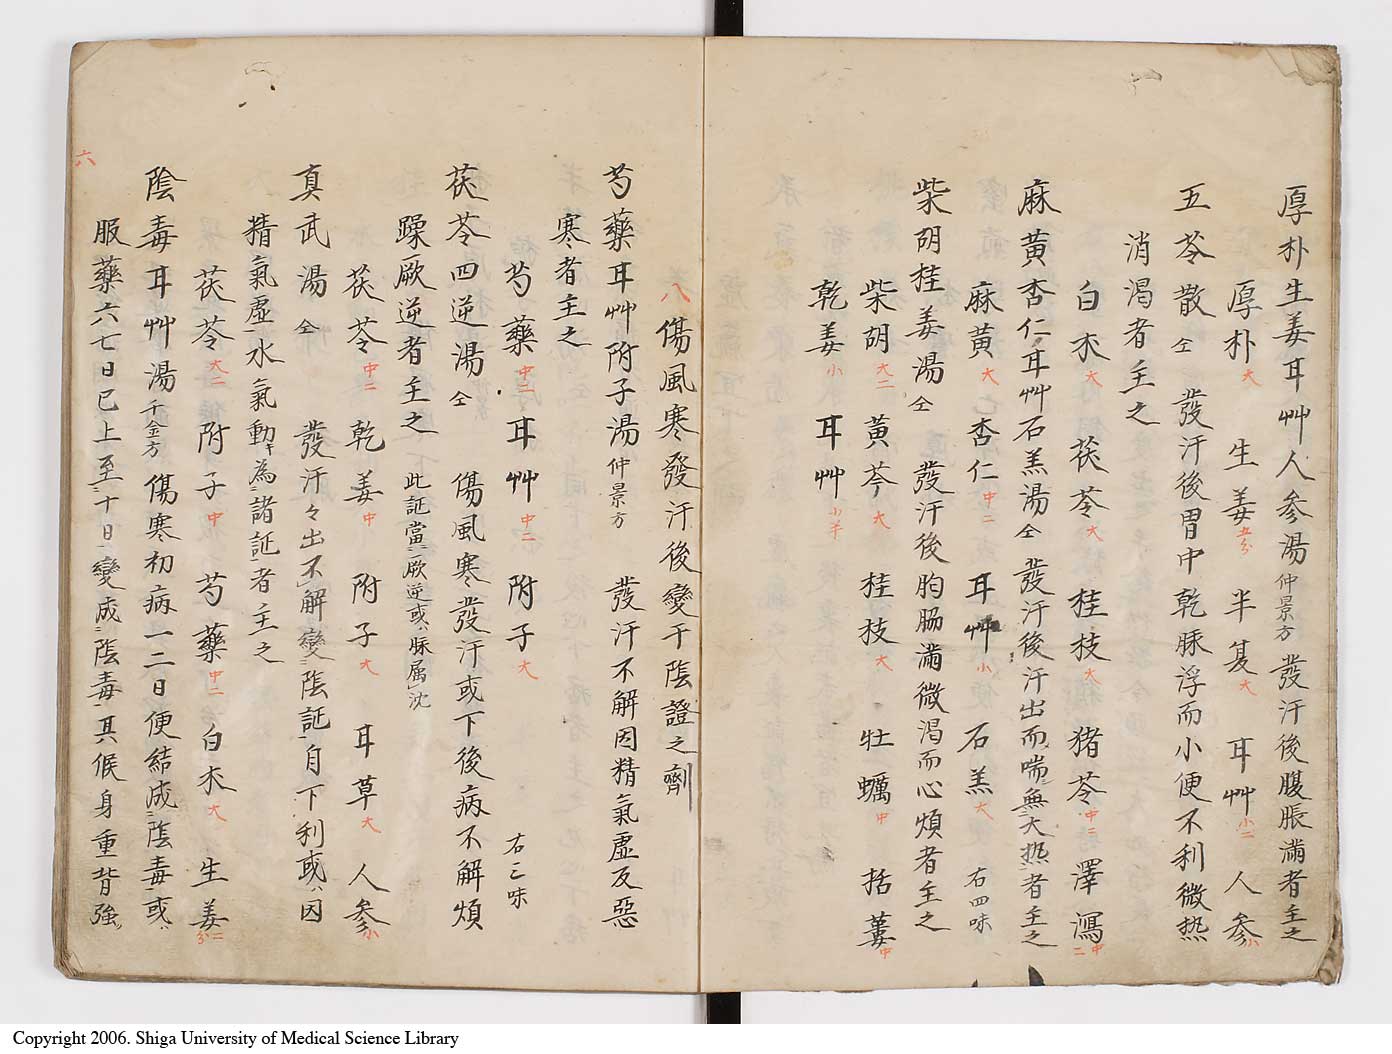 厚朴生姜耳艸人参湯 仲景方 發汗後腹脹滿者主之
厚朴 大 生姜 五分 半夏 大 耳艸 小二 人参 小
五苓散 仝 發汗後胃中乾脉浮而小便不利微热
消渇者主之
白朮 大 茯苓 大 桂枝 大 猪苓 中二 澤瀉 中二
麻黄杏仁耳艸石羔湯 仝 發汗後汗出而喘無大热者主之
麻黄 大 杏仁 中二 耳艸 小 石羔 大 右四味
柴胡桂姜湯 仝 發汗後胸脇滿微渇而心煩者主之
柴胡 大二 黄芩 大 桂枝 大 牡蠣 中 括蔞 中
乾姜 小 耳艸 小半
八 傷風寒發汗後變于陰證之劑
芍藥耳艸附子湯 仲景方 發汗不解因精氣虚反惡
寒者主之
芍藥 中二 耳艸 中二 附子 大 右三味
茯苓四逆湯 仝 傷風寒發汗或下後病不解煩
躁厥逆者主之 此証當ニ厥逆或ハ脉属沈
茯苓 中二 乾姜 中 附子 大 耳草 大 人参 小
真武湯 仝 發汗々出不解變ニ陰証自下利或ハ因
精氣虚水氣動キ為諸証者主之
茯苓 大二 附子 中 芍藥 中二 白朮 大 生姜 二分
陰毒耳艸湯 千金方 傷寒初病一二日便結成ニ陰毒或ハ
服藥六七日已上至ニ十日變成ニ陰毒其候身重背強
六
Copyright 2006. Shiga University of Medical Science Library